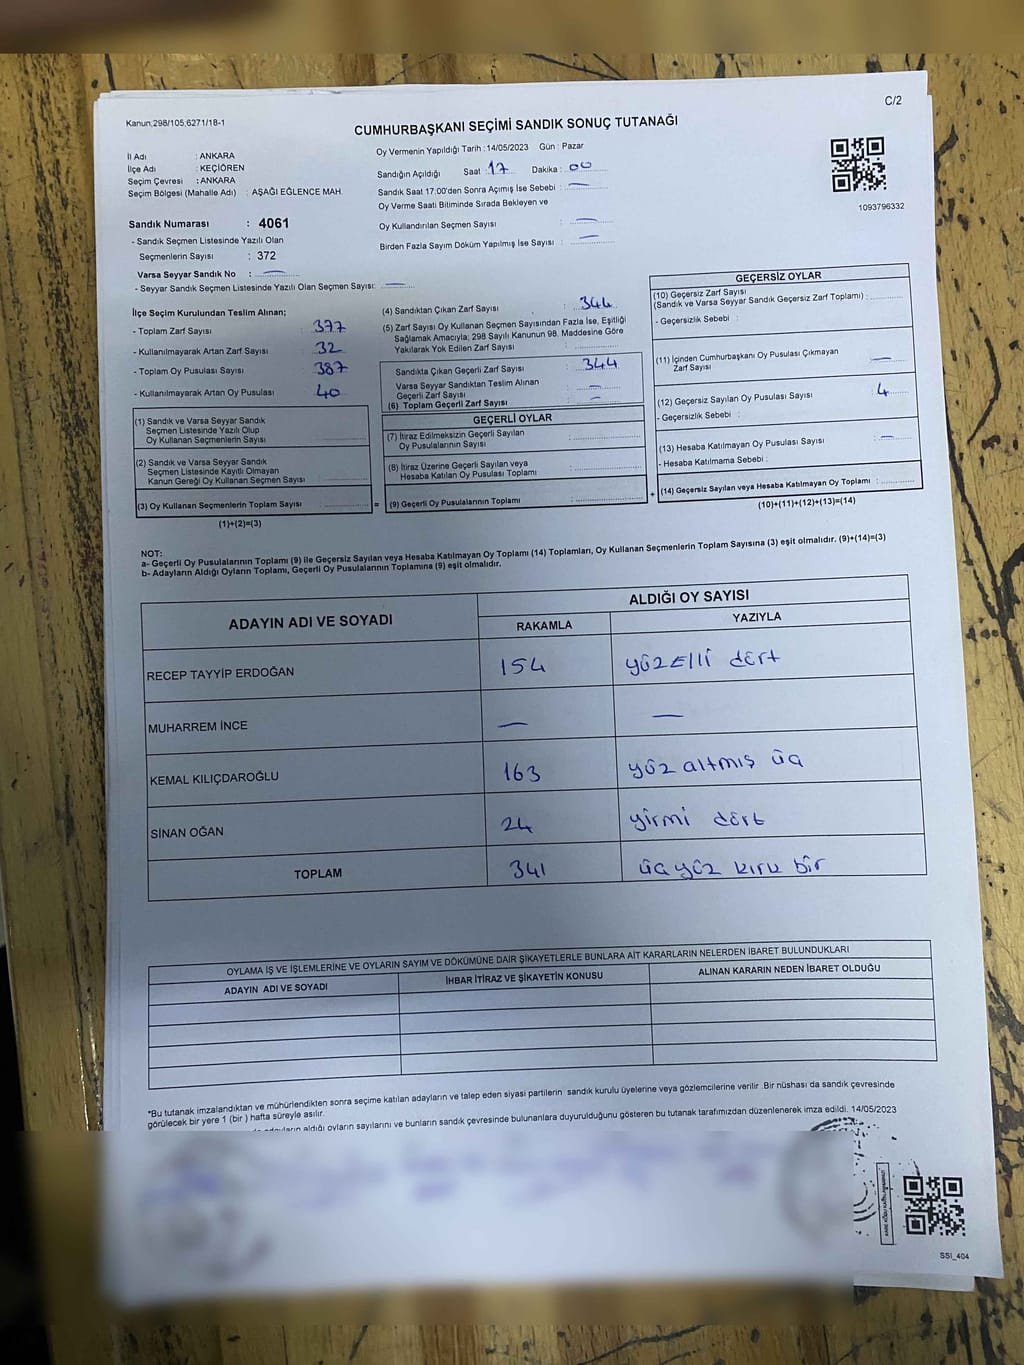 C/2
Kanun;298/105,6271/18-1
CUMHURBAŞKANI SEÇİMİ SANDIK SONUÇ TUTANAĞI
İl Adı : ANKARA
İlçe Adı : KEÇİÖREN
Seçim Çevresi : ANKARA
Seçim Bölgesi (Mahalle Adı) : AŞAĞI EĞLENCE MAH.
Oy Vermenin Yapıldığı Tarih :14/05/2023 Gün : Pazar
Sandığın Açıldığı Saat : 17 Dakika : 00
Sandık Saat 17:00'den Sonra Açımış İse Sebebi : —
Oy Verme Saati Bitiminde Sırada Bekleyen ve
Oy Kullandırılan Seçmen Sayısı : —
Birden Fazla Sayım Döküm Yapılmış İse Sayısı : —
1093796332
Sandık Numarası : 4061
- Sandık Seçmen Listesinde Yazılı Olan
Seçmenlerin Sayısı : 372
Varsa Seyyar Sandık No : —
- Seyyar Sandık Seçmen Listesinde Yazılı Olan Seçmen Sayısı: —
İlçe Seçim Kurulundan Teslim Alınan;
- Toplam Zarf Sayısı : 377
- Kullanılmayarak Artan Zarf Sayısı : 32
- Toplam Oy Pusulası Sayısı : 387
- Kullanılmayarak Artan Oy Pusulası : 40
(1) Sandık ve Varsa Seyyar Sandık
Seçmen Listesinde Yazılı Olup
Oy Kullanan Seçmenlerin Sayısı :
(2) Sandık ve Varsa Seyyar Sandık
Seçmen Listesinde Kayıtlı Olmayan
Kanun Gereği Oy Kullanan Seçmen Sayısı :
(3) Oy Kullanan Seçmenlerin Toplam Sayısı : =
(1)+(2)=(3)
(4) Sandıktan Çıkan Zarf Sayısı : 344
(5) Zarf Sayısı Oy Kullanan Seçmen Sayısından Fazla İse, Eşitliği
Sağlamak Amacıyla; 298 Sayılı Kanunun 98. Maddesine Göre
Yakılarak Yok Edilen Zarf Sayısı :
Sandıkta Çıkan Geçerli Zarf Sayısı : 344
Varsa Seyyar Sandıktan Teslim Alınan
Geçerli Zarf Sayısı : —
(6) Toplam Geçerli Zarf Sayısı : —
GEÇERLİ OYLAR
(7) İtiraz Edilmeksizin Geçerli Sayılan
Oy Pusulalarının Sayısı :
(8) İtiraz Üzerine Geçerli Sayılan veya
Hesaba Katılan Oy Pusulası Toplamı :
(9) Geçerli Oy Pusulalarının Toplamı : +
GEÇERSİZ OYLAR
(10) Geçersiz Zarf Sayısı
(Sandık ve Varsa Seyyar Sandık Geçersiz Zarf Toplamı) :
- Geçersizlik Sebebi :
(11) İçinden Cumhurbaşkanı Oy Pusulası Çıkmayan
Zarf Sayısı : —
(12) Geçersiz Sayılan Oy Pusulası Sayısı : 4
- Geçersizlik Sebebi :
(13) Hesaba Katılmayan Oy Pusulası Sayısı : —
- Hesaba Katılmama Sebebi :
(14) Geçersiz Sayılan veya Hesaba Katılmayan Oy Toplamı :
(10)+(11)+(12)+(13)=(14)
NOT:
a- Geçerli Oy Pusulalarının Toplamı (9) ile Geçersiz Sayılan veya Hesaba Katılmayan Oy Toplamı (14) Toplamları, Oy Kullanan Seçmenlerin Toplam Sayısına (3) eşit olmalıdır. (9)+(14)=(3)
b- Adayların Aldığı Oyların Toplamı, Geçerli Oy Pusulalarının Toplamına (9) eşit olmalıdır.
ADAYIN ADI VE SOYADI
ALDIĞI OY SAYISI
RAKAMLA YAZIYLA
RECEP TAYYİP ERDOĞAN 154 yüzelli dört
MUHARREM İNCE — —
KEMAL KILIÇDAROĞLU 163 yüz altmış üç
SİNAN OĞAN 24 yirmi dört
TOPLAM 341 üçyüz kırk bir
OYLAMA İŞ VE İŞLEMLERİNE VE OYLARIN SAYIM VE DÖKÜMÜNE DAİR ŞİKAYETLERLE BUNLARA AİT KARARLARIN NELERDEN İBARET BULUNDUKLARI
ADAYIN ADI VE SOYADI İHBAR İTİRAZ VE ŞİKAYETİN KONUSU ALINAN KARARIN NEDEN İBARET OLDUĞU
*Bu tutanak imzalandıktan ve mühürlendikten sonra seçime katılan adayların ve talep eden siyasi partilerin sandık kurulu üyelerine veya gözlemcilerine verilir .Bir nüshası da sandık çevresinde
görülecek bir yere 1 (bir ) hafta süreyle asılır.
aldığı oyların sayılarını ve bunların sandık çevresinde bulunanlara duyurulduğunu gösteren bu tutanak tarafımızdan düzenlenerek imza edildi. 14/05/2023
SSI_404